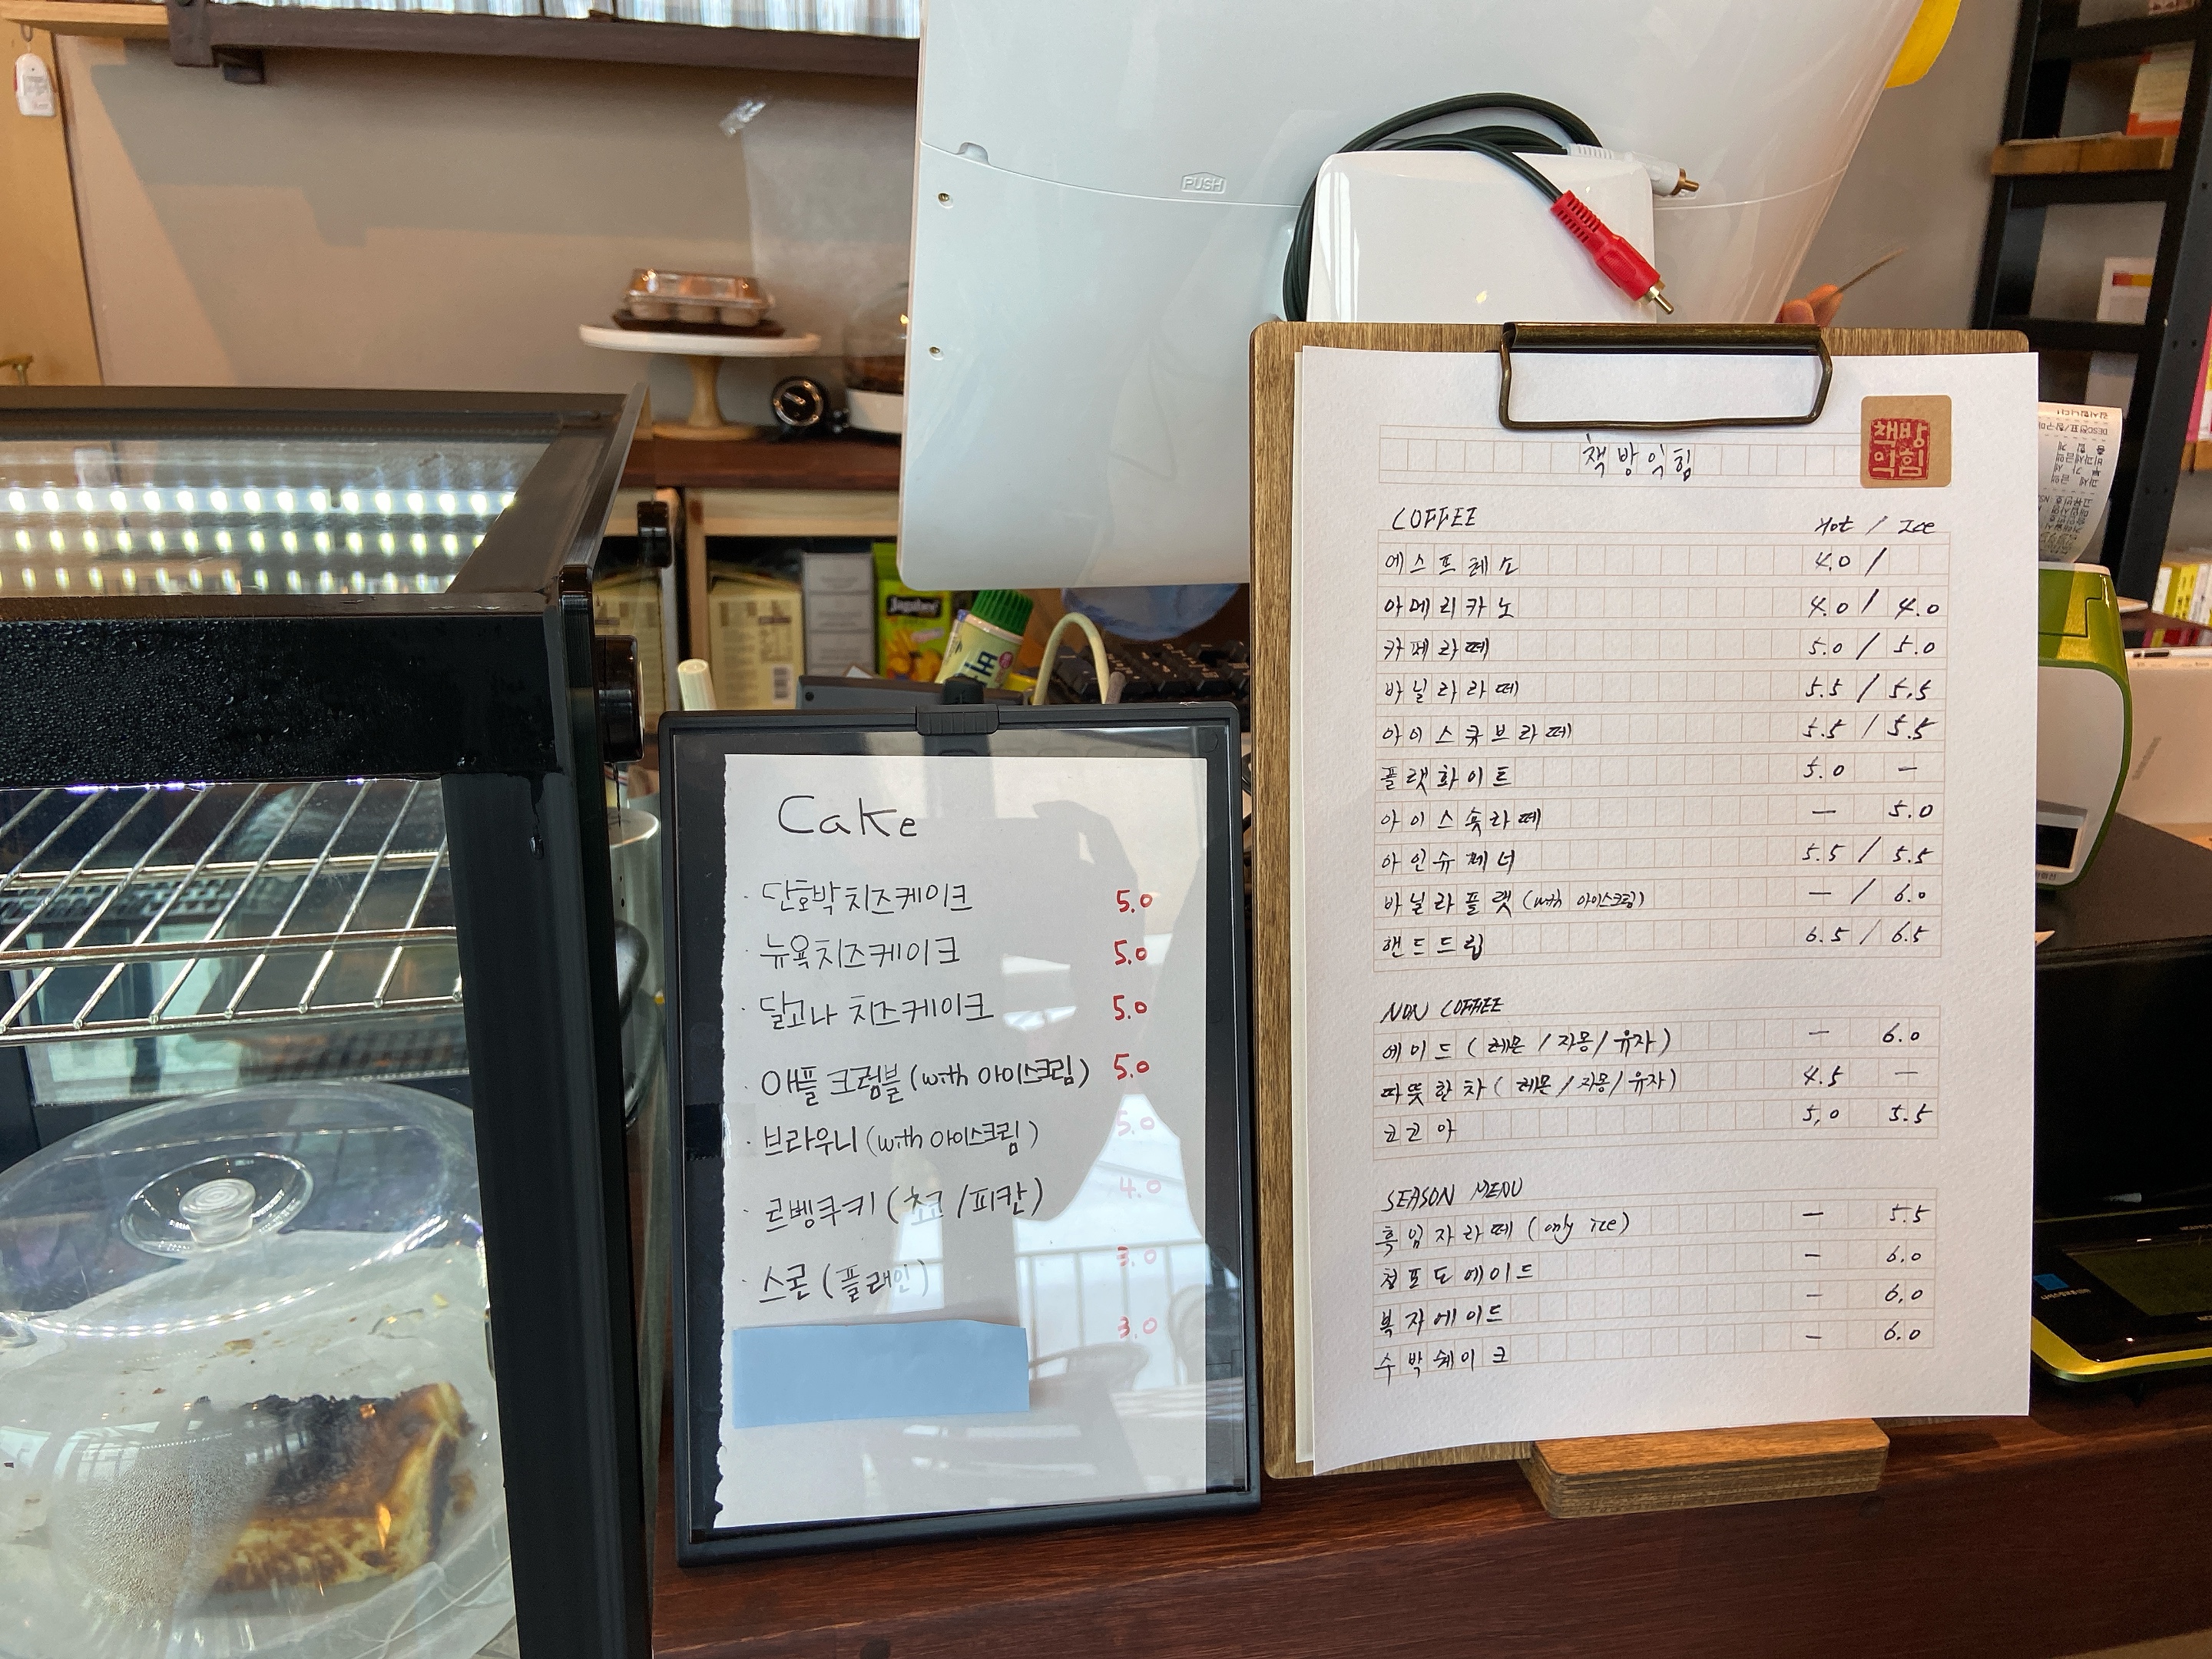 PUSH
책방익힘
책방
익힘
COFFEE Hot / Ice
에스프레소 4.0 /
아메리카노 4.0 / 4.0
카페라떼 5.0 / 5.0
바닐라라떼 5.5 / 5.5
아이스큐브라떼 5.5 / 5.5
플랫화이트 5.0 —
아이스숏라떼 — 5.0
아인슈페너 5.5 / 5.5
바닐라플랫 (with 아이스크림) — / 6.0
핸드드립 6.5 / 6.5
NON COFFEE
에이드 (레몬 / 자몽 / 유자) — 6.0
따뜻한차 (레몬 / 자몽 / 유자) 4.5 —
코코아 5.0 5.5
SEASON MENU
흑임자라떼 (only ice) — 5.5
청포도에이드 — 6.0
복자에이드 — 6.0
수박쉐이크 — 6.0
Cake
· 단호박 치즈케이크 5.0
· 뉴욕치즈케이크 5.0
· 달고나 치즈케이크 5.0
· 애플 크럼블 (with 아이스크림) 5.0
· 브라우니 (with 아이스크림) 5.0
· 르벵쿠키 (초코 / 피칸) 4.0
· 스콘 (플레인) 3.0
3.0